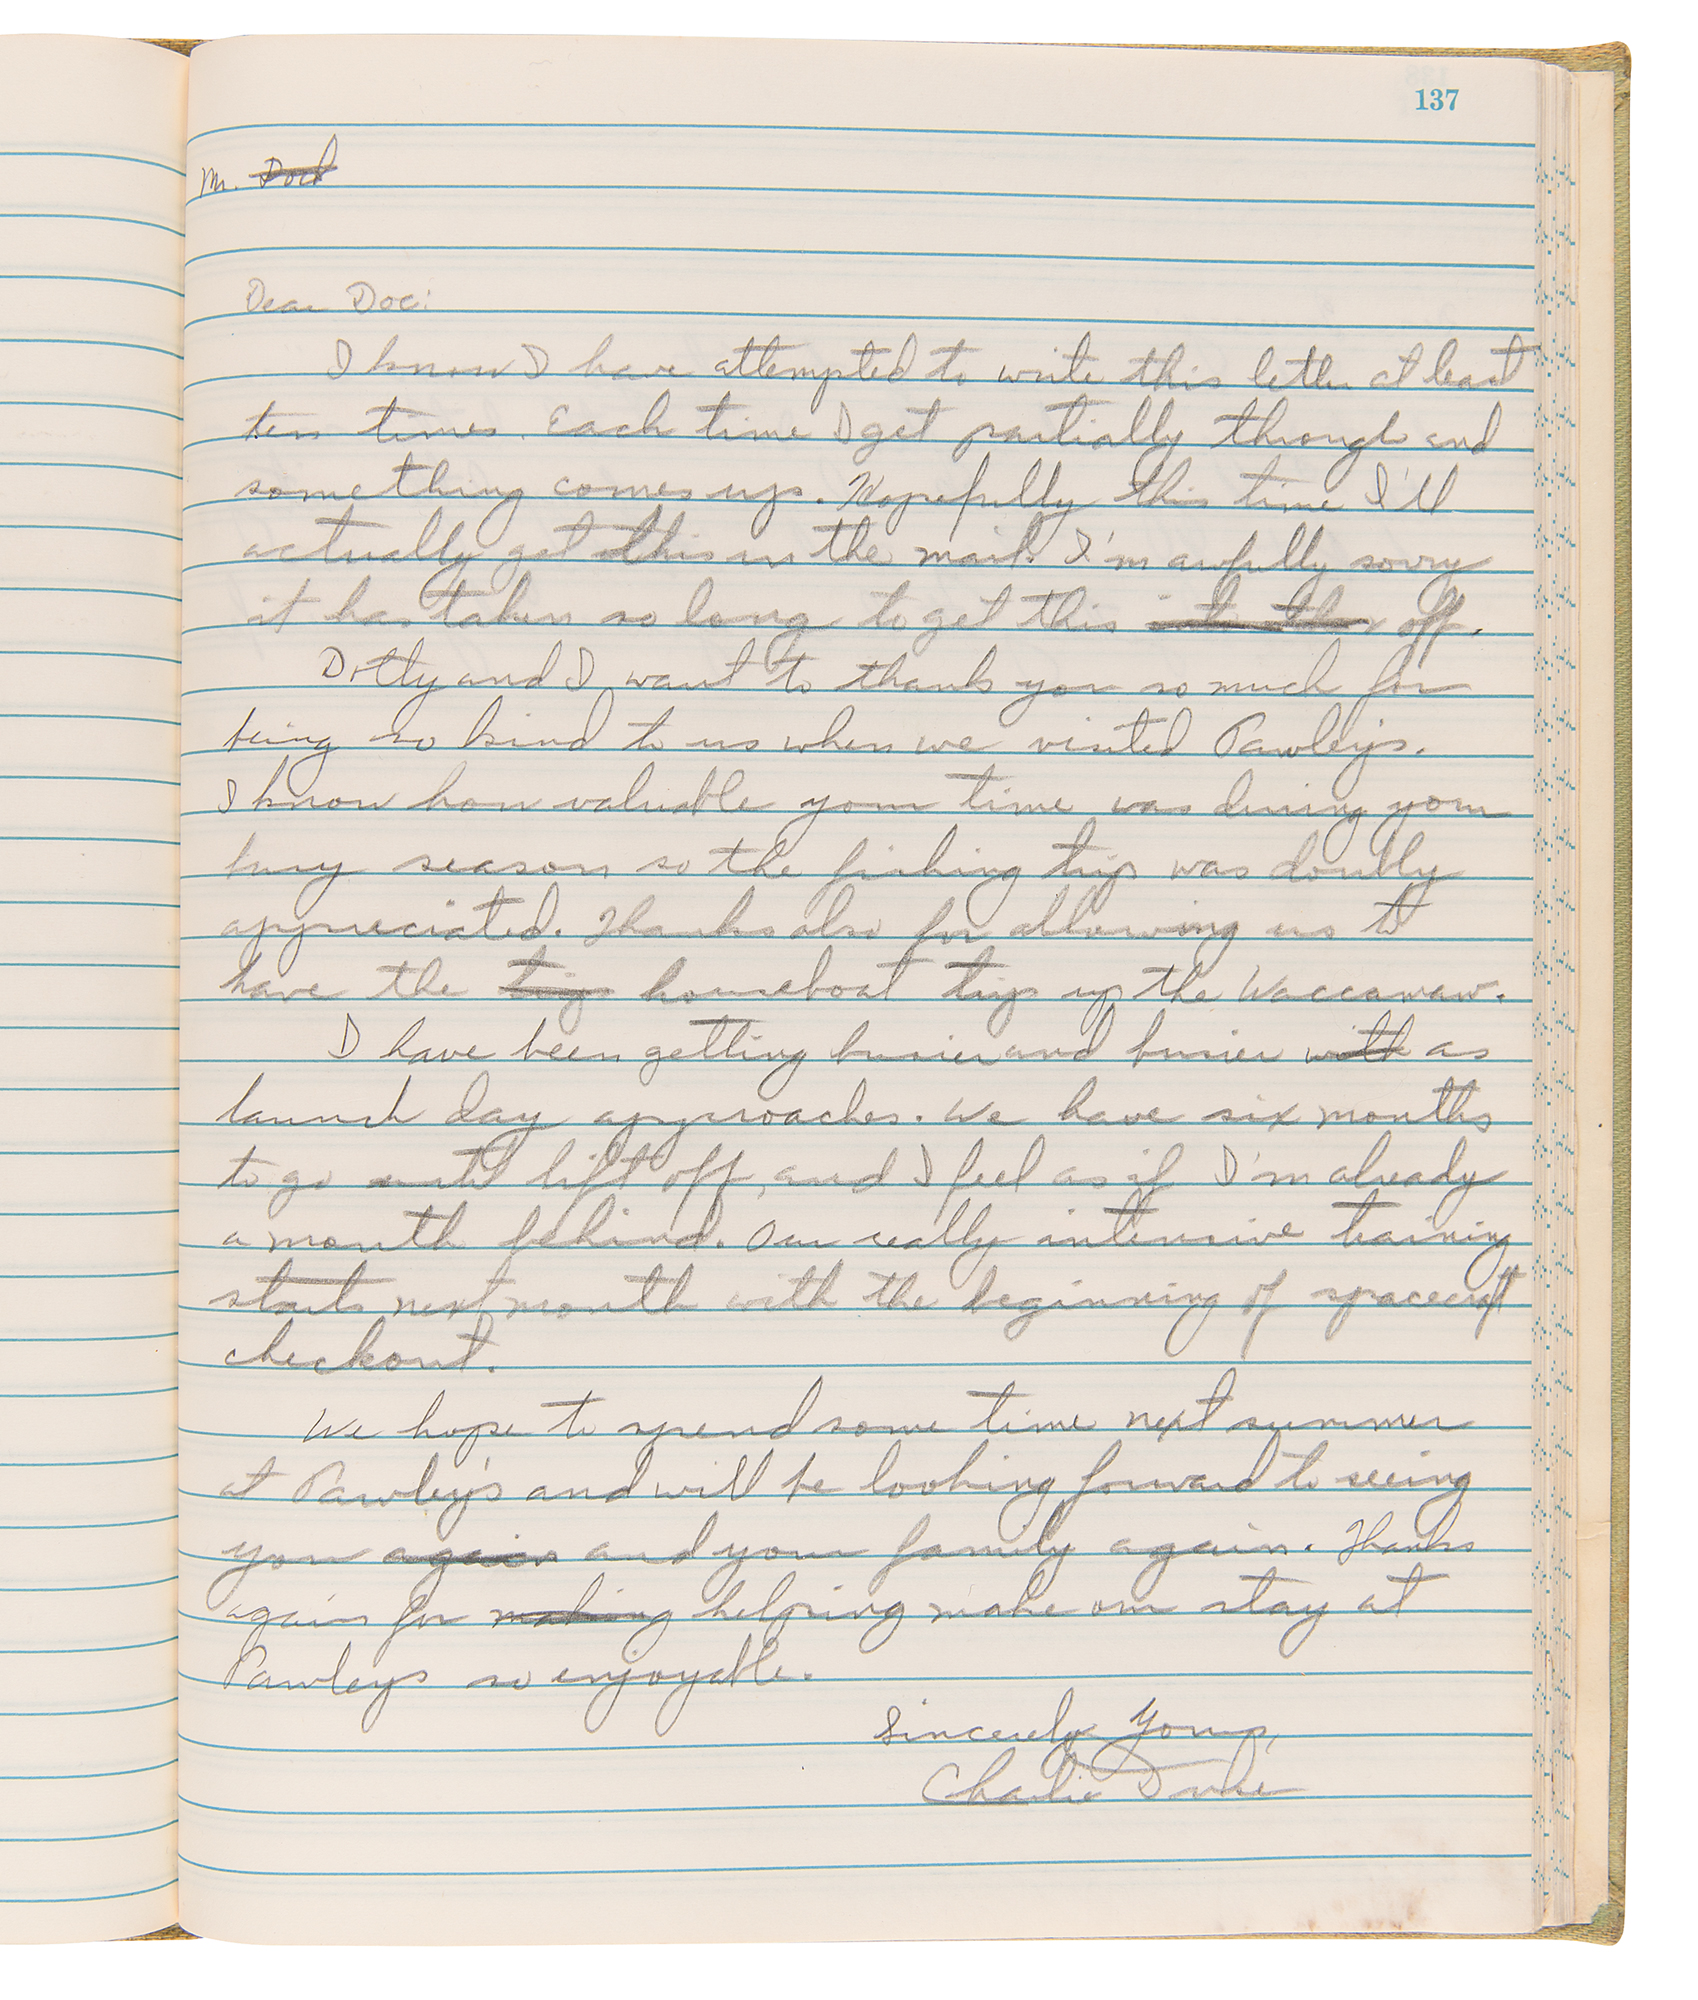 137
Mr. Doc
Dear Doc:
I know I have attempted to write this letter at least
ten times. Each time I get partially through and
something comes up. Hopefully this time I'll
actually get this in the mail. I'm awfully sorry
it has taken so long to get this into the off.
Dotty and I want to thank you so much for
being so kind to us when we visited Pawleys.
I know how valuable your time was during your
busy season so the fishing trip was doubly
appreciated. Thanks also for allowing us to
have the trip houseboat trip up the Waccamaw.
I have been getting busier and busier with as
launch day approaches. We have six months
to go until lift off, and I feel as if I'm already
a month behind. Our really intensive training
starts next month with the beginning of spacecraft
checkout.
We hope to spend some time next summer
at Pawley's and will be looking forward to seeing
you again and your family again. Thanks
again for making helping make our stay at
Pawleys so enjoyable.
Sincerely Yours,
Charlie Duke